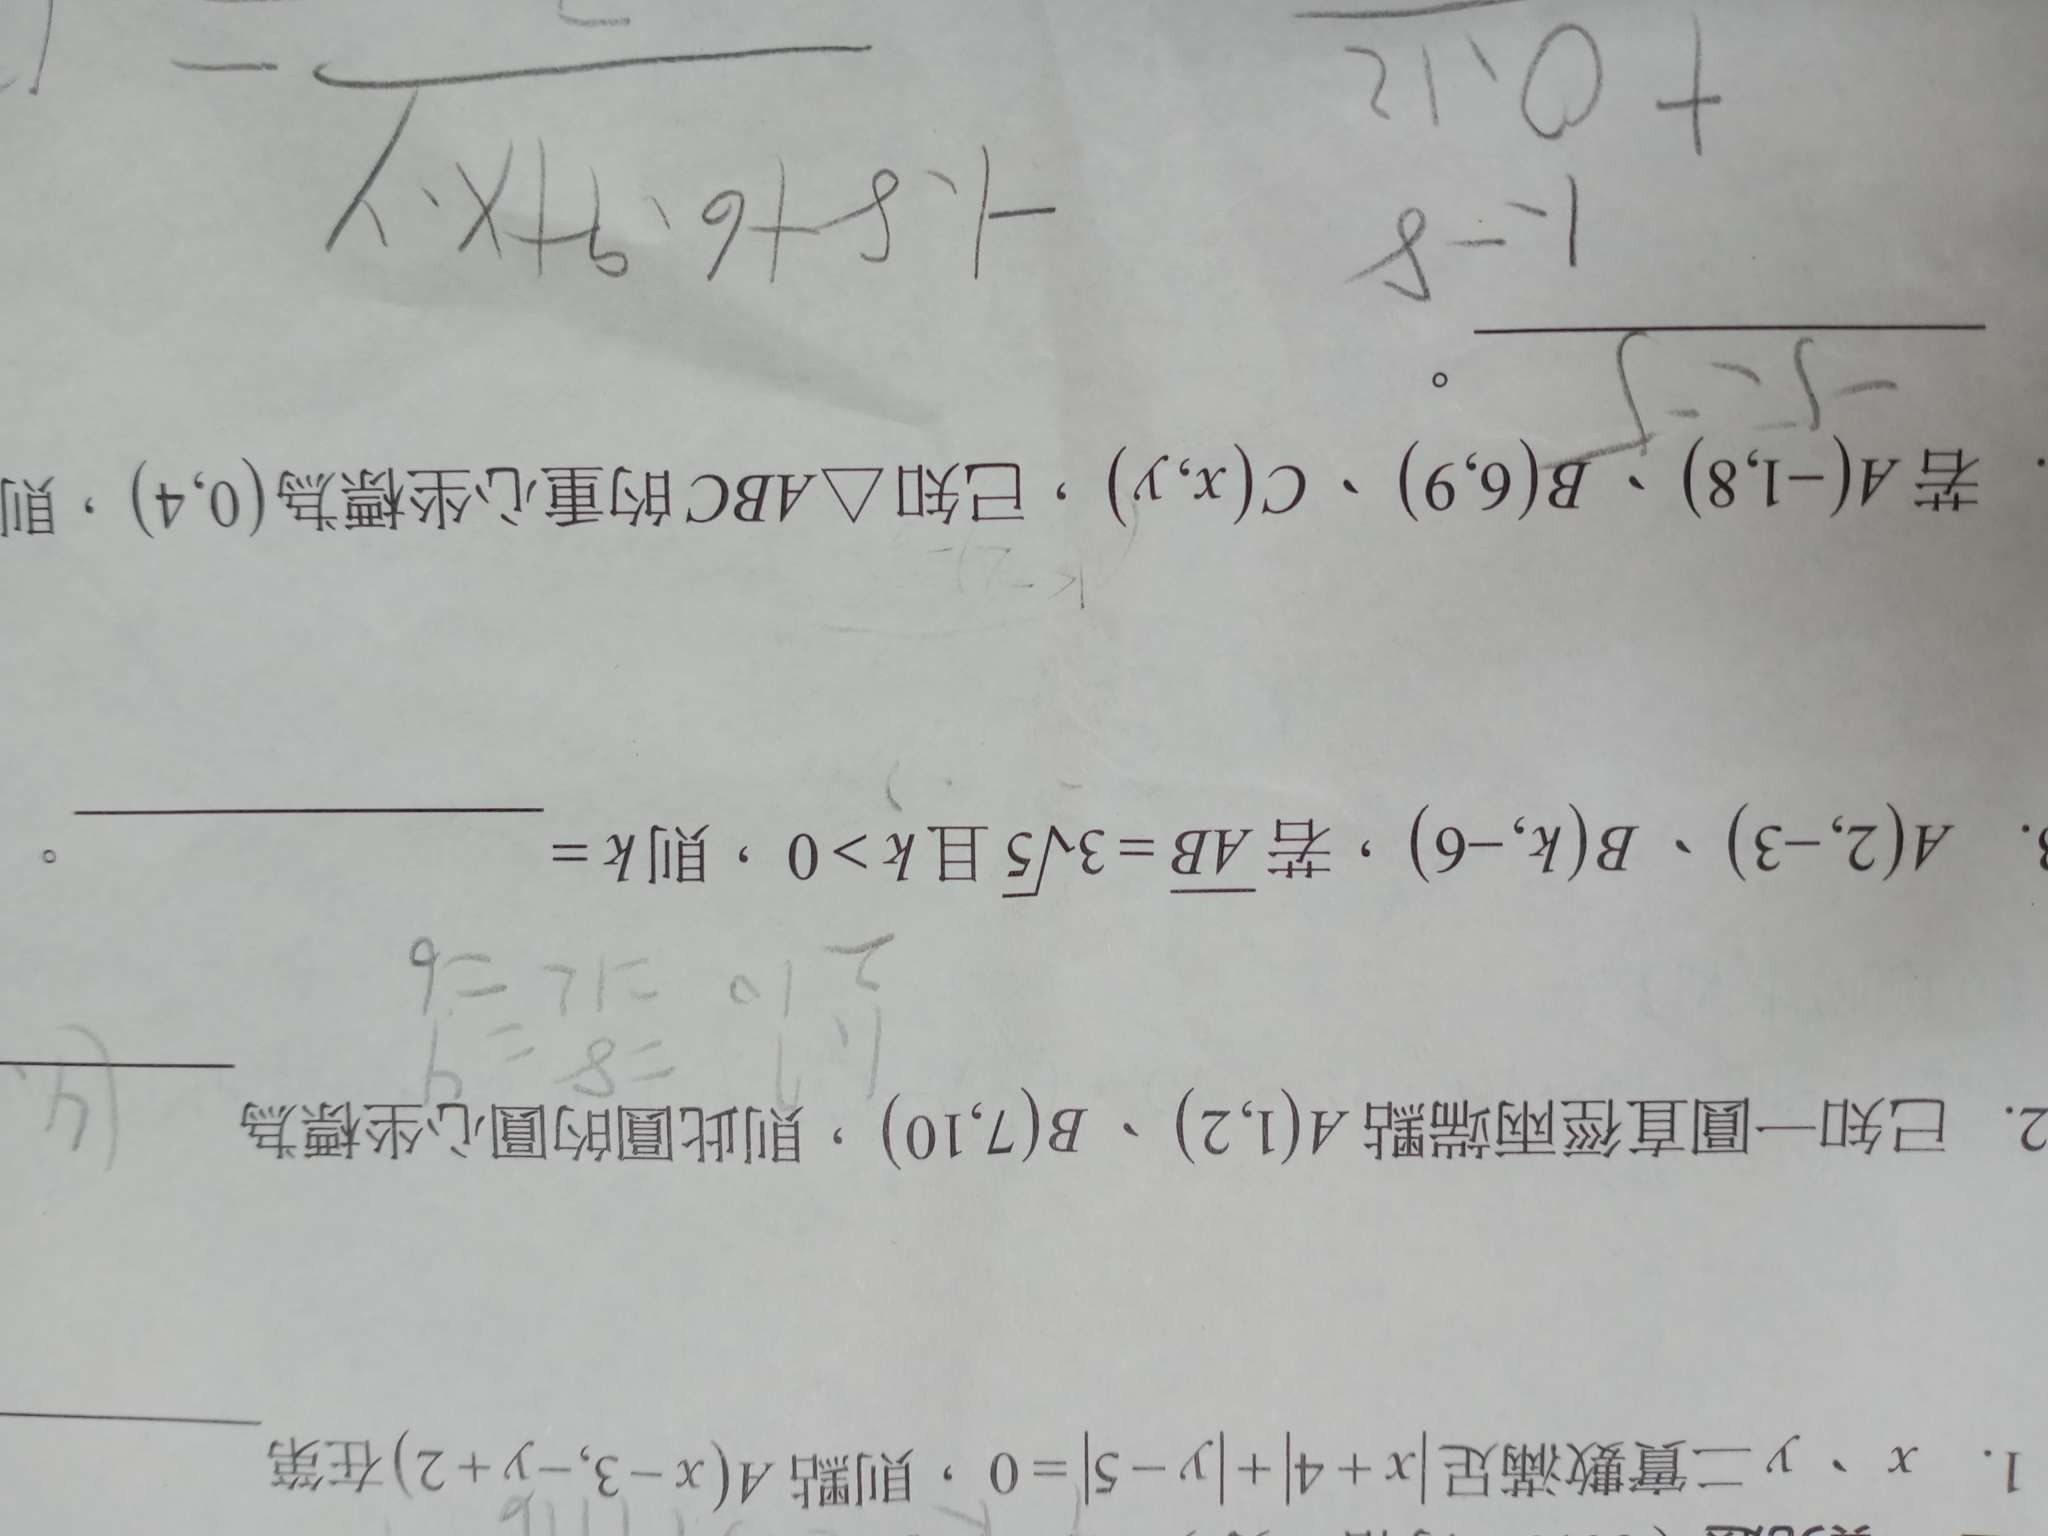 1. x、y 二實數滿足 |x+4|+|y−5|=0，則點 A(x−3,−y+2) 在第
2. 已知一圓直徑兩端點 A(1,2)、B(7,10)，則此圓的圓心坐標為
(4,
1,7 =8=4
2 10 =12=6
3. A(2,−3)、B(k,−6)，若 AB=3√5 且 k>0，則 k= 。
若 A(−1,8)、B(6,9)、C(x,y)，已知△ABC 的重心坐標為(0,4)，則
-5,-5 。
1,-8
-1,8+6,9+x,y
+0,12